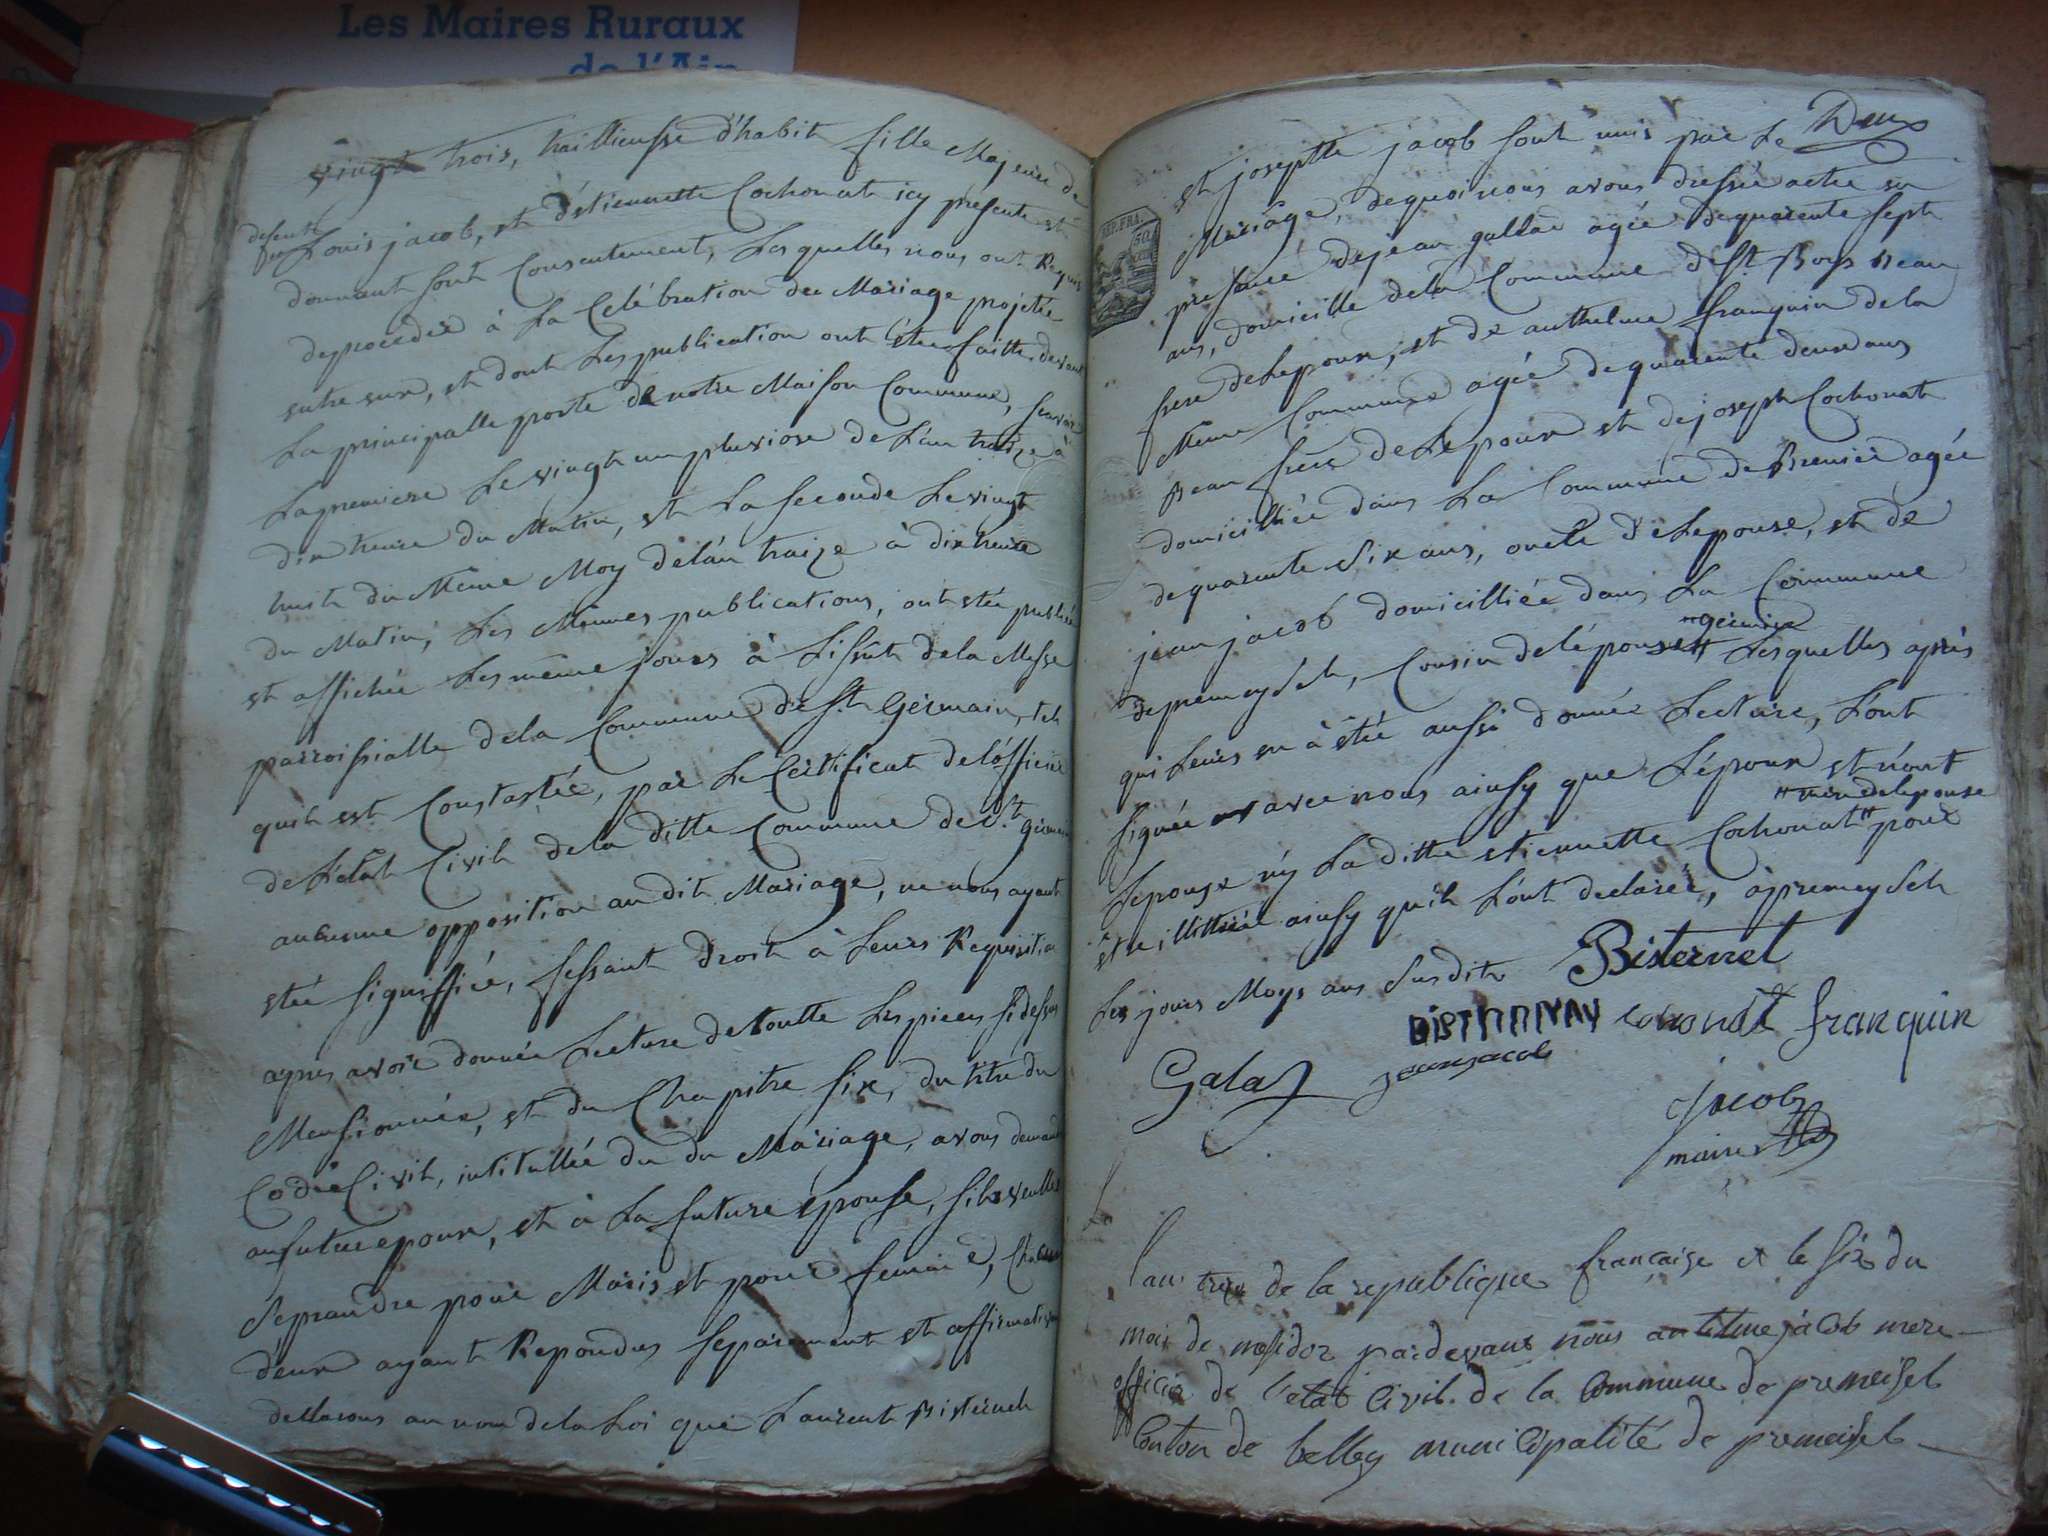 Les Maires Ruraux
de l'Ain
vingt trois, taillieusse d'habit fille Majeure de
defeunt
feu Louis jacob, et d'étiennette Cochonat icy presente et
donnant sont Consentement, Lesquelles nous ont Requis
deproceder à La Celébration du Mariage projetté
entre eux, et dont Les publication ont étée faitte devant
La principalle porte de notre Maison Commune, scavoir
Lapremiere Le vingt un pluviose de L'an traize à
dix heure du Matin, et La seconde Le vingt
huit du Même Moy del'an traize à dix heure
du Matin, Les Mêmes publications, ont étée publiée
et affichée Les même jours à L'issüe dela Messe
parroissialle dela Commune de St Germain, tel
quil est Constastée, par Le Certificat de L'officier
de L'état Civil dela ditte Commune de St germain
aucunne opposition audit Mariage, ne nous ayant
étée signiffiée, fessant droit à Leurs Requisition
apres avoir donnée Lecture detoutte Les pieces si dessus
Mensionnée, et du Chapitre six, du titre du
Code Civil, intitullée du du Mariage, avons demandé
aufutur epoux, et à La future épouse, sils veulles
Seprandre pour Maris et pour femme, Chacun
d'eux ayant Repondus separement et affirmativement
declarons au nom dela Loi que Laurent Bisternel
Deux
et josephtte jacob sont unis par Le
REP. FRA.
50
Mariage, dequoi nous avons dressée actre en
presence de jean gallaz agée dequarente sept
ans, domicille dela Commune de St Boys Beau
frere deLepoux, et de anthelme franquin dela
Même Commune agée dequarente deux ans
Beau frere deLepoux et dejoseph Cochonat
domicilliée dans La Commune de Brenier agée
dequarente Six ans, oncle deLepouse, et de
jean jacob domicilliée dans La Commune
"germain
depremeySel, Cousin deLépouse" Lesquelles après
qui Leurs en à étée aussi donnée Lecture, L'ont
signée avec nous ainsy que L'époux et n'ont
"mere delepouse
Lepouse n'y La ditte etiennette Cochonat" pour
être illittérée ainsy qu'il L'ont declarée, àpremeySel
Les jours Moys ans Susdit Bisternel
cononat franquin
Galaz jeanjacob
jacob
maire
Lan treze de la republique française et le siz du
mois de mesidor pardevant nous antelme jacob mere
officier de l'etat Civil de la Commune de premeisel
Canton de belley municipalité de premeisel